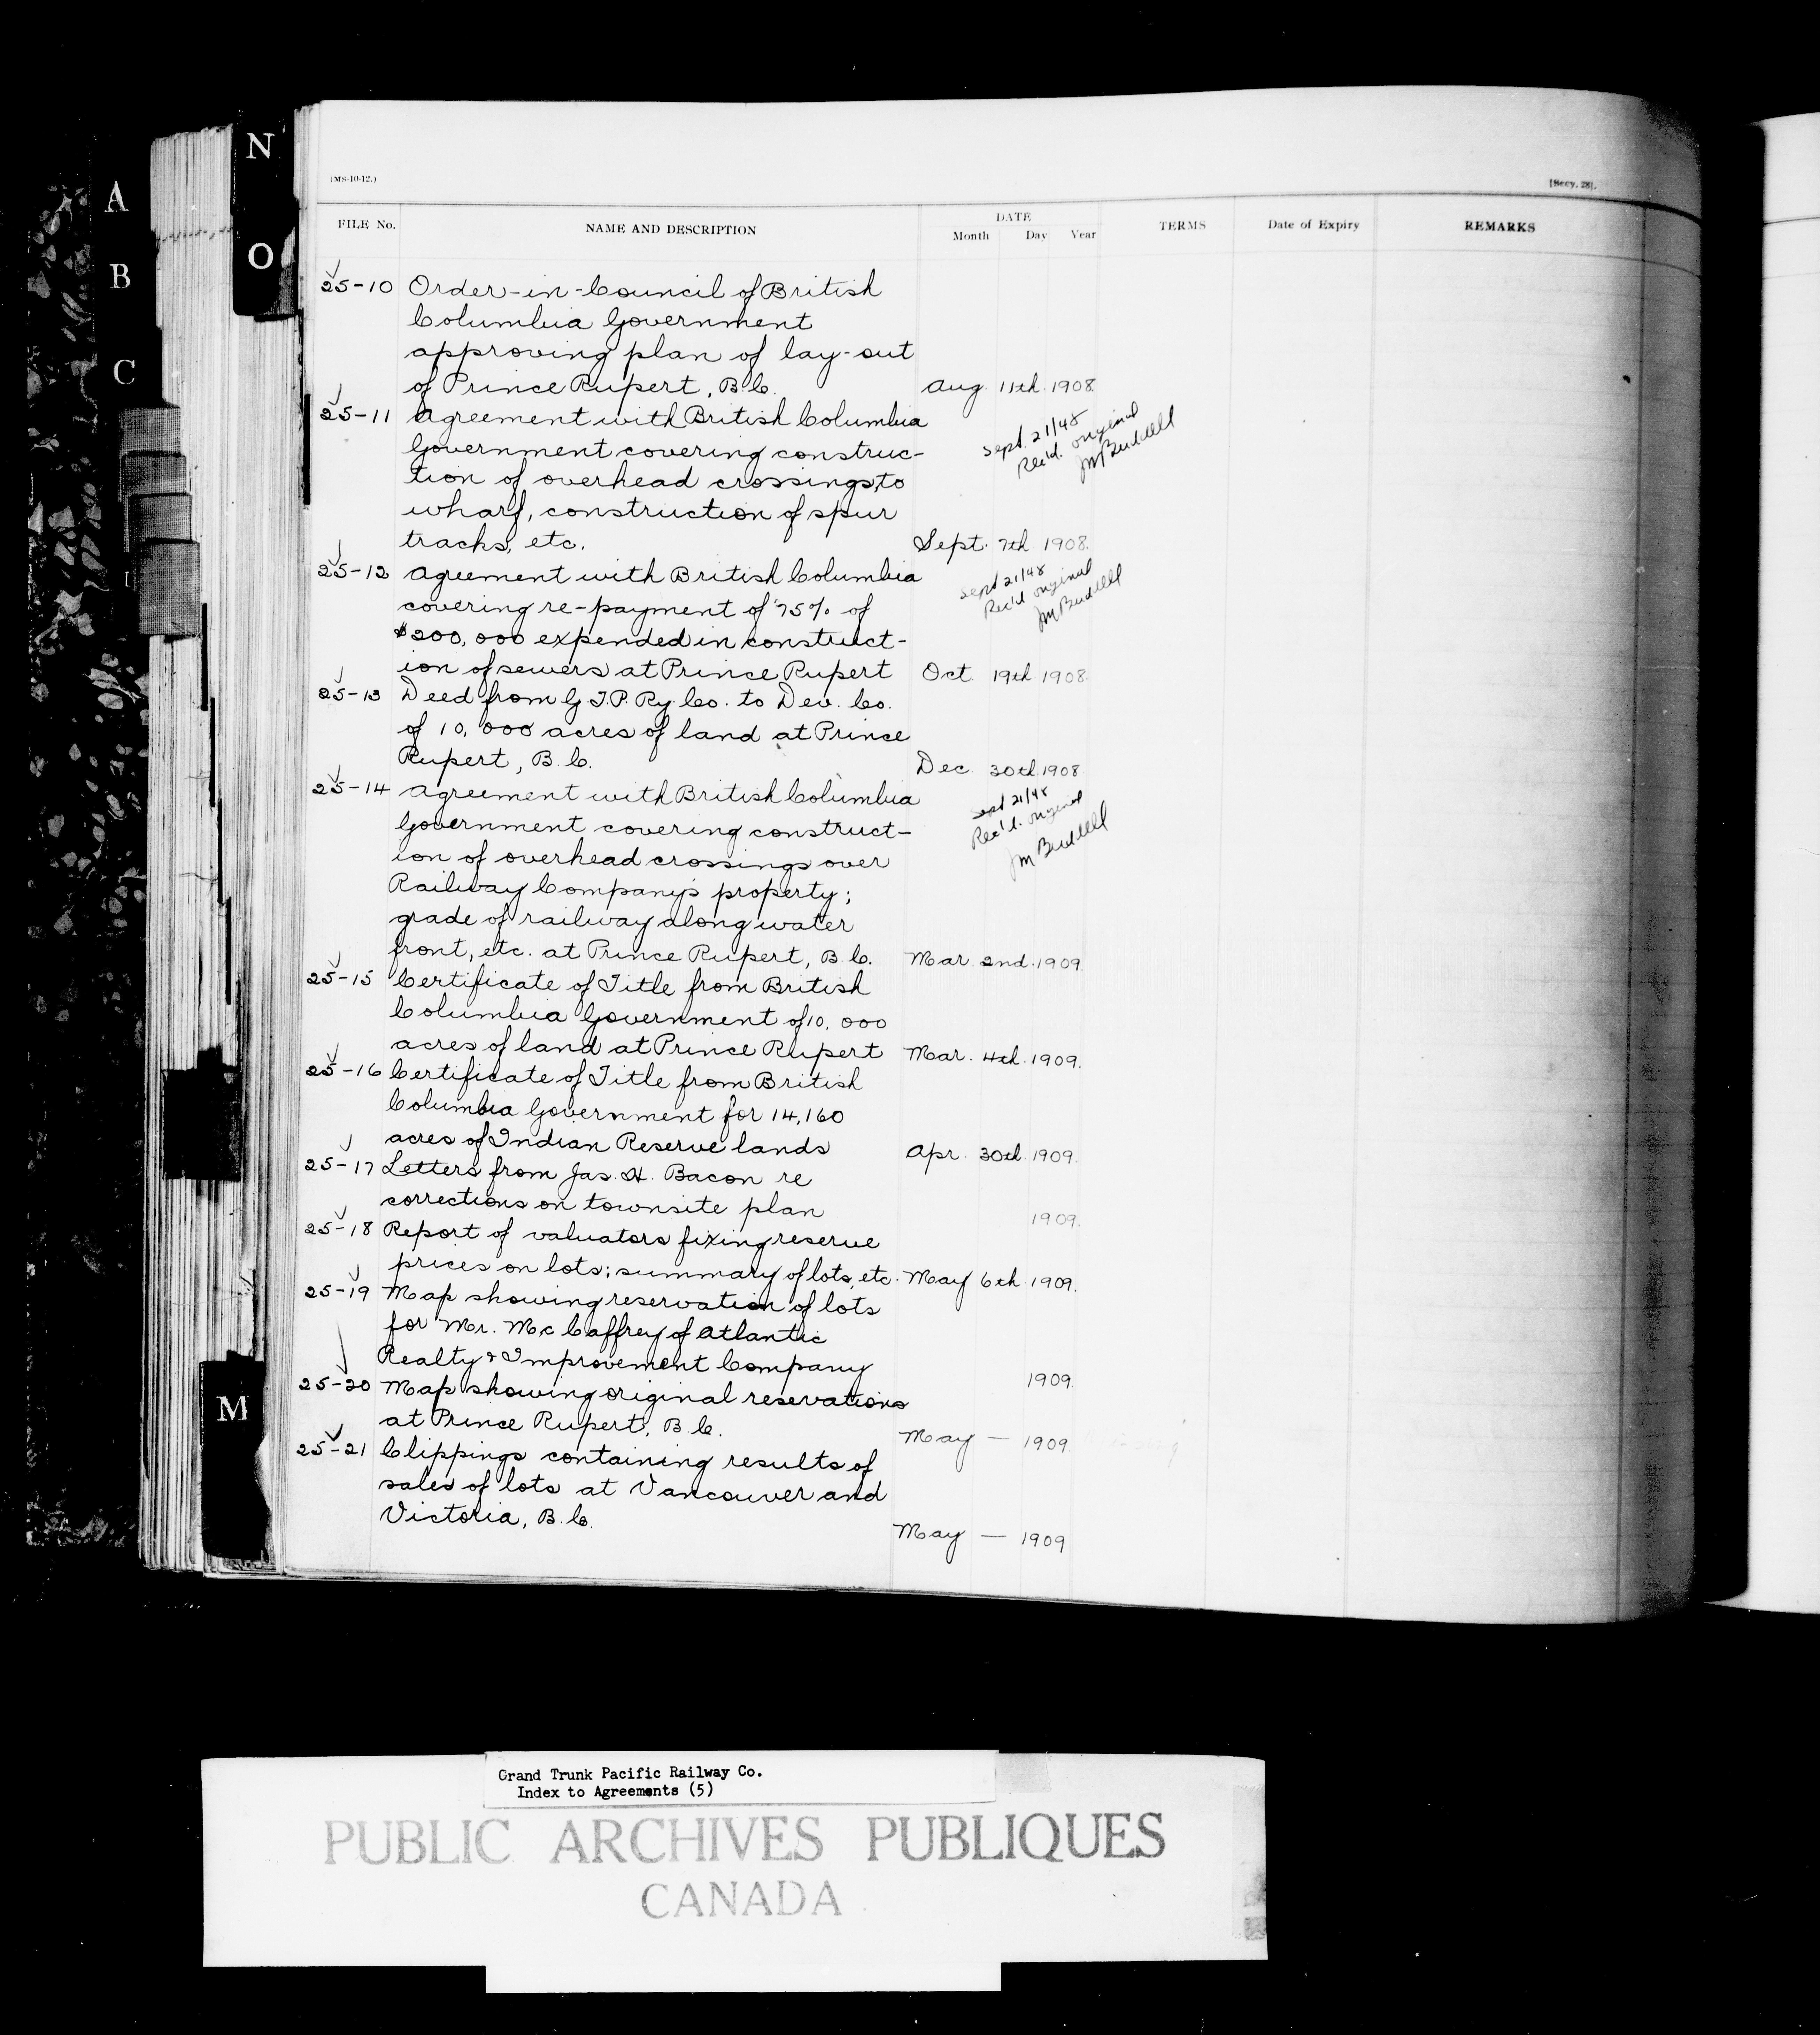 N
O
A
B
C
M
(MS-10-12.)
[Secy. 28].
FILE No. NAME AND DESCRIPTION DATE Month Day Year TERMS Date of Expiry REMARKS
25-10 Order-in-Council of British
Columbia Government
approving plan of lay-out
of Prince Rupert, B.C. Aug. 11th 1908
25-11 Agreement with British Columbia
Government covering construc-
tion of overhead crossings to
wharf, construction of spur
tracks, etc. Sept. 7th 1908.
Sept. 21/48
Rec'd. original
25-12 Agreement with British Columbia
covering re-payment of 75% of
$200,000 expended in construct-
ion of sewers at Prince Rupert Oct. 19th 1908.
Sept 21/48
Rec'd original
25-13 Deed from G.T.P. Ry. Co. to Dev. Co.
of 10,000 acres of land at Prince
Rupert, B.C. Dec. 30th 1908
25-14 Agreement with British Columbia
Government covering construct-
ion of overhead crossings over
Railway Company's property;
grade of railway along water
front, etc. at Prince Rupert, B.C. Mar. 2nd. 1909.
Sept 21/48
Rec'd. original
25-15 Certificate of Title from British
Columbia Government of 10,000
acres of land at Prince Rupert Mar. 4th. 1909.
25-16 Certificate of Title from British
Columbia Government for 14,160
acres of Indian Reserve lands Apr. 30th. 1909.
25-17 Letters from Jas. H. Bacon re
corrections on townsite plan 1909.
25-18 Report of valuators fixing reserve
prices on lots; summary of lots, etc. May 6th. 1909.
25-19 Map showing reservation of lots
for Mr. McCaffrey of Atlantic
Realty & Improvement Company 1909.
25-20 Map showing original reservations
at Prince Rupert, B.C. May — 1909.
25-21 Clippings containing results of
sales of lots at Vancouver and
Victoria, B.C. May — 1909
Grand Trunk Pacific Railway Co.
Index to Agreements (5)
PUBLIC ARCHIVES PUBLIQUES
CANADA